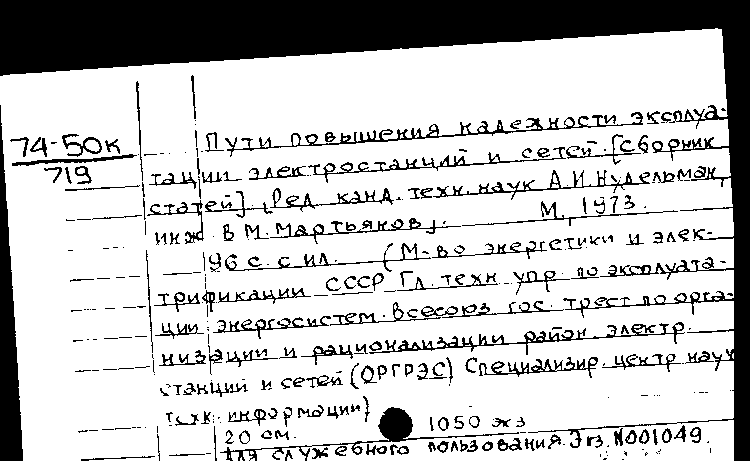 74-50к
719
Пути повышения надежности эксплуа-
тации электростанций и сетей. [Сборник
статей]. [Ред. канд. техн. наук А.И. Нудельман,
инж. В М. Мартьянов]. М, 1973.
96 с. с ил. (М-во энергетики и элек-
трификации СССР Гл. техн упр. по эксплуата-
ции энергосистем. Всесоюз гос. трест по орга-
низации и рационализации район. электр.
станций и сетей (ОРГРЭС) Специализир. центр науч
техн. информации)
20 см. 1050 экз
Для служебного пользования. Экз. N001049.